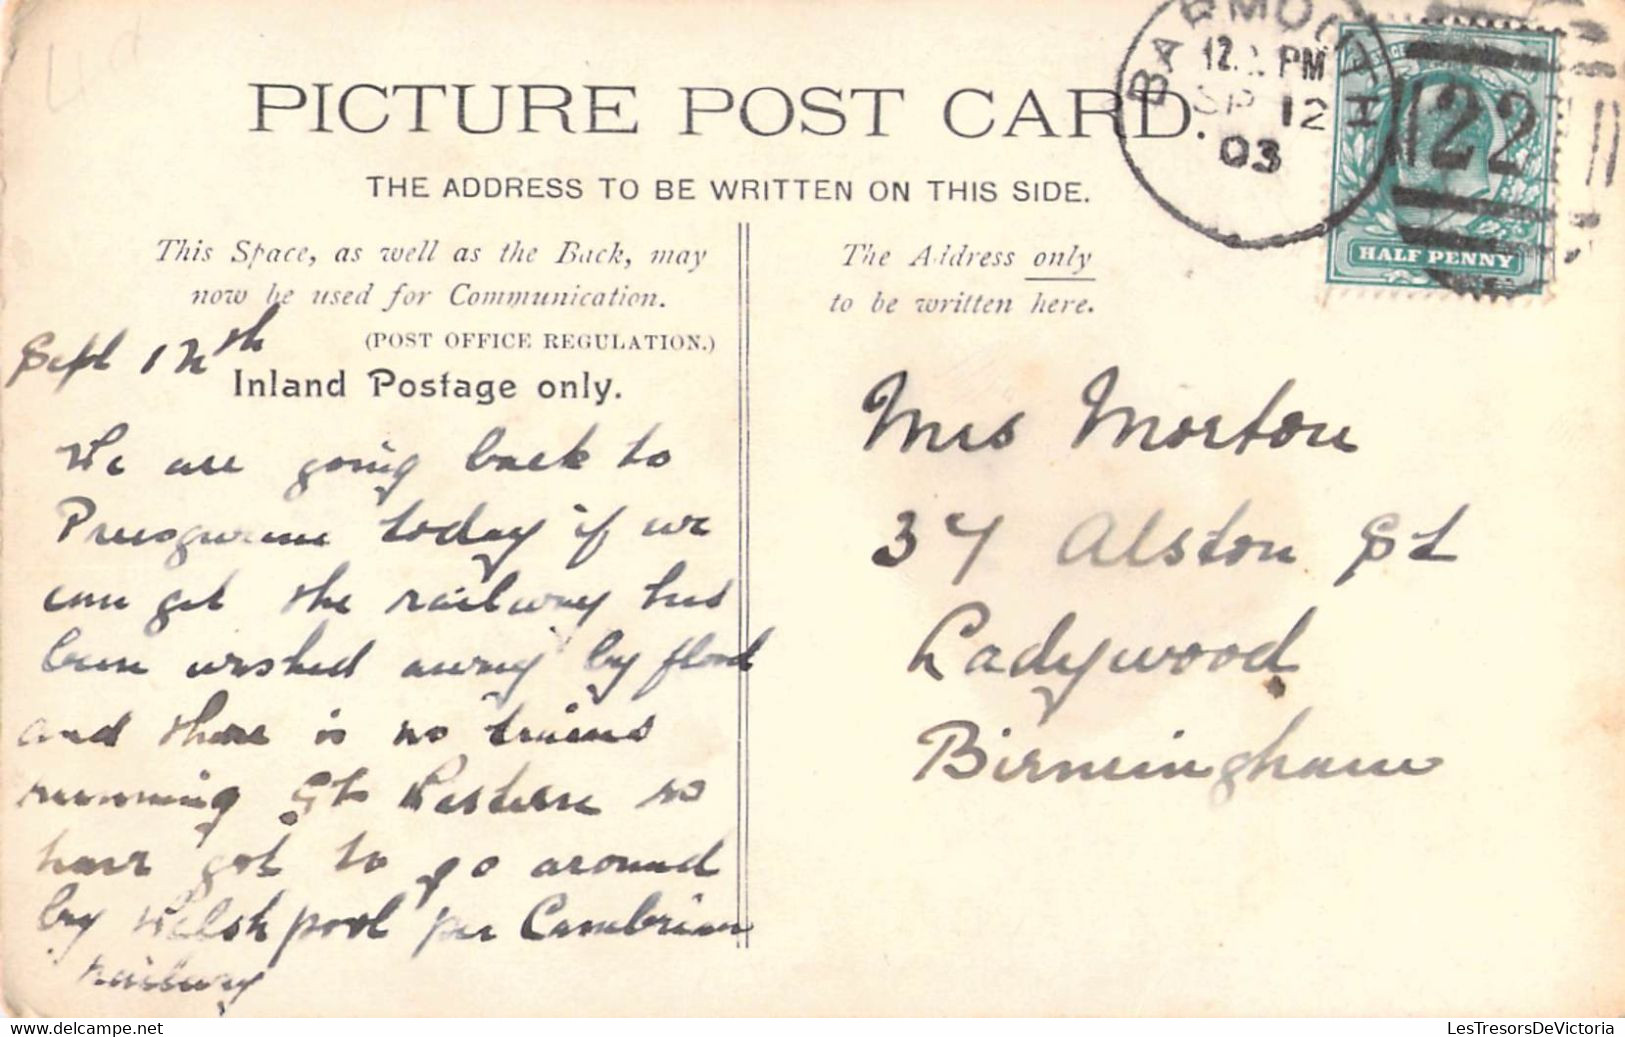 PICTURE POST CARD.
THE ADDRESS TO BE WRITTEN ON THIS SIDE.
BARMOUTH
12. PM
SP 12
03
22
HALF PENNY
This Space, as well as the Back, may
now be used for Communication.
(POST OFFICE REGULATION.)
Inland Postage only.
The Address only
to be written here.
Sept 12th
We are going back to
today if we
can get the railway has
been washed away by flood
and there is no trains
running Gt Western so
have got to go around
by Welshpool per Cambrian
railway
Mrs Morton
37 Alston St
Ladywood
Birmingham
www.delcampe.net
LesTresorsDeVictoria